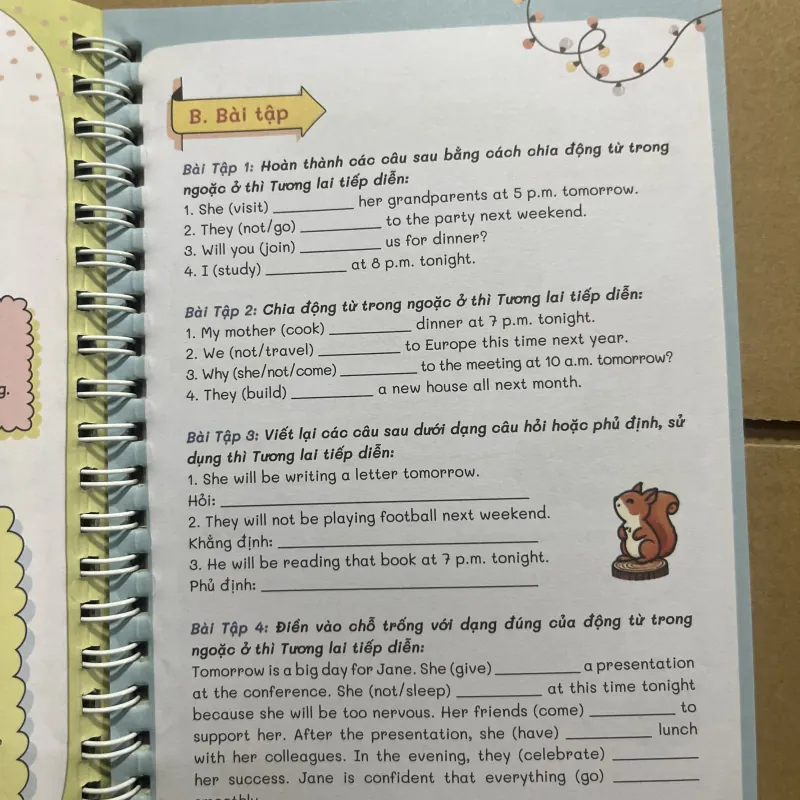 B. Bài tập
Bài Tập 1: Hoàn thành các câu sau bằng cách chia động từ trong
ngoặc ở thì Tương lai tiếp diễn:
1. She (visit) __________ her grandparents at 5 p.m. tomorrow.
2. They (not/go) __________ to the party next weekend.
3. Will you (join) __________ us for dinner?
4. I (study) __________ at 8 p.m. tonight.
Bài Tập 2: Chia động từ trong ngoặc ở thì Tương lai tiếp diễn:
1. My mother (cook) __________ dinner at 7 p.m. tonight.
2. We (not/travel) __________ to Europe this time next year.
3. Why (she/not/come) __________ to the meeting at 10 a.m. tomorrow?
4. They (build) __________ a new house all next month.
Bài Tập 3: Viết lại các câu sau dưới dạng câu hỏi hoặc phủ định, sử
dụng thì Tương lai tiếp diễn:
1. She will be writing a letter tomorrow.
Hỏi: __________
2. They will not be playing football next weekend.
Khẳng định: __________
3. He will be reading that book at 7 p.m. tonight.
Phủ định: __________
Bài Tập 4: Điền vào chỗ trống với dạng đúng của động từ trong
ngoặc ở thì Tương lai tiếp diễn:
Tomorrow is a big day for Jane. She (give) __________ a presentation
at the conference. She (not/sleep) __________ at this time tonight
because she will be too nervous. Her friends (come) __________ to
support her. After the presentation, she (have) __________ lunch
with her colleagues. In the evening, they (celebrate) __________
her success. Jane is confident that everything (go) __________
g.